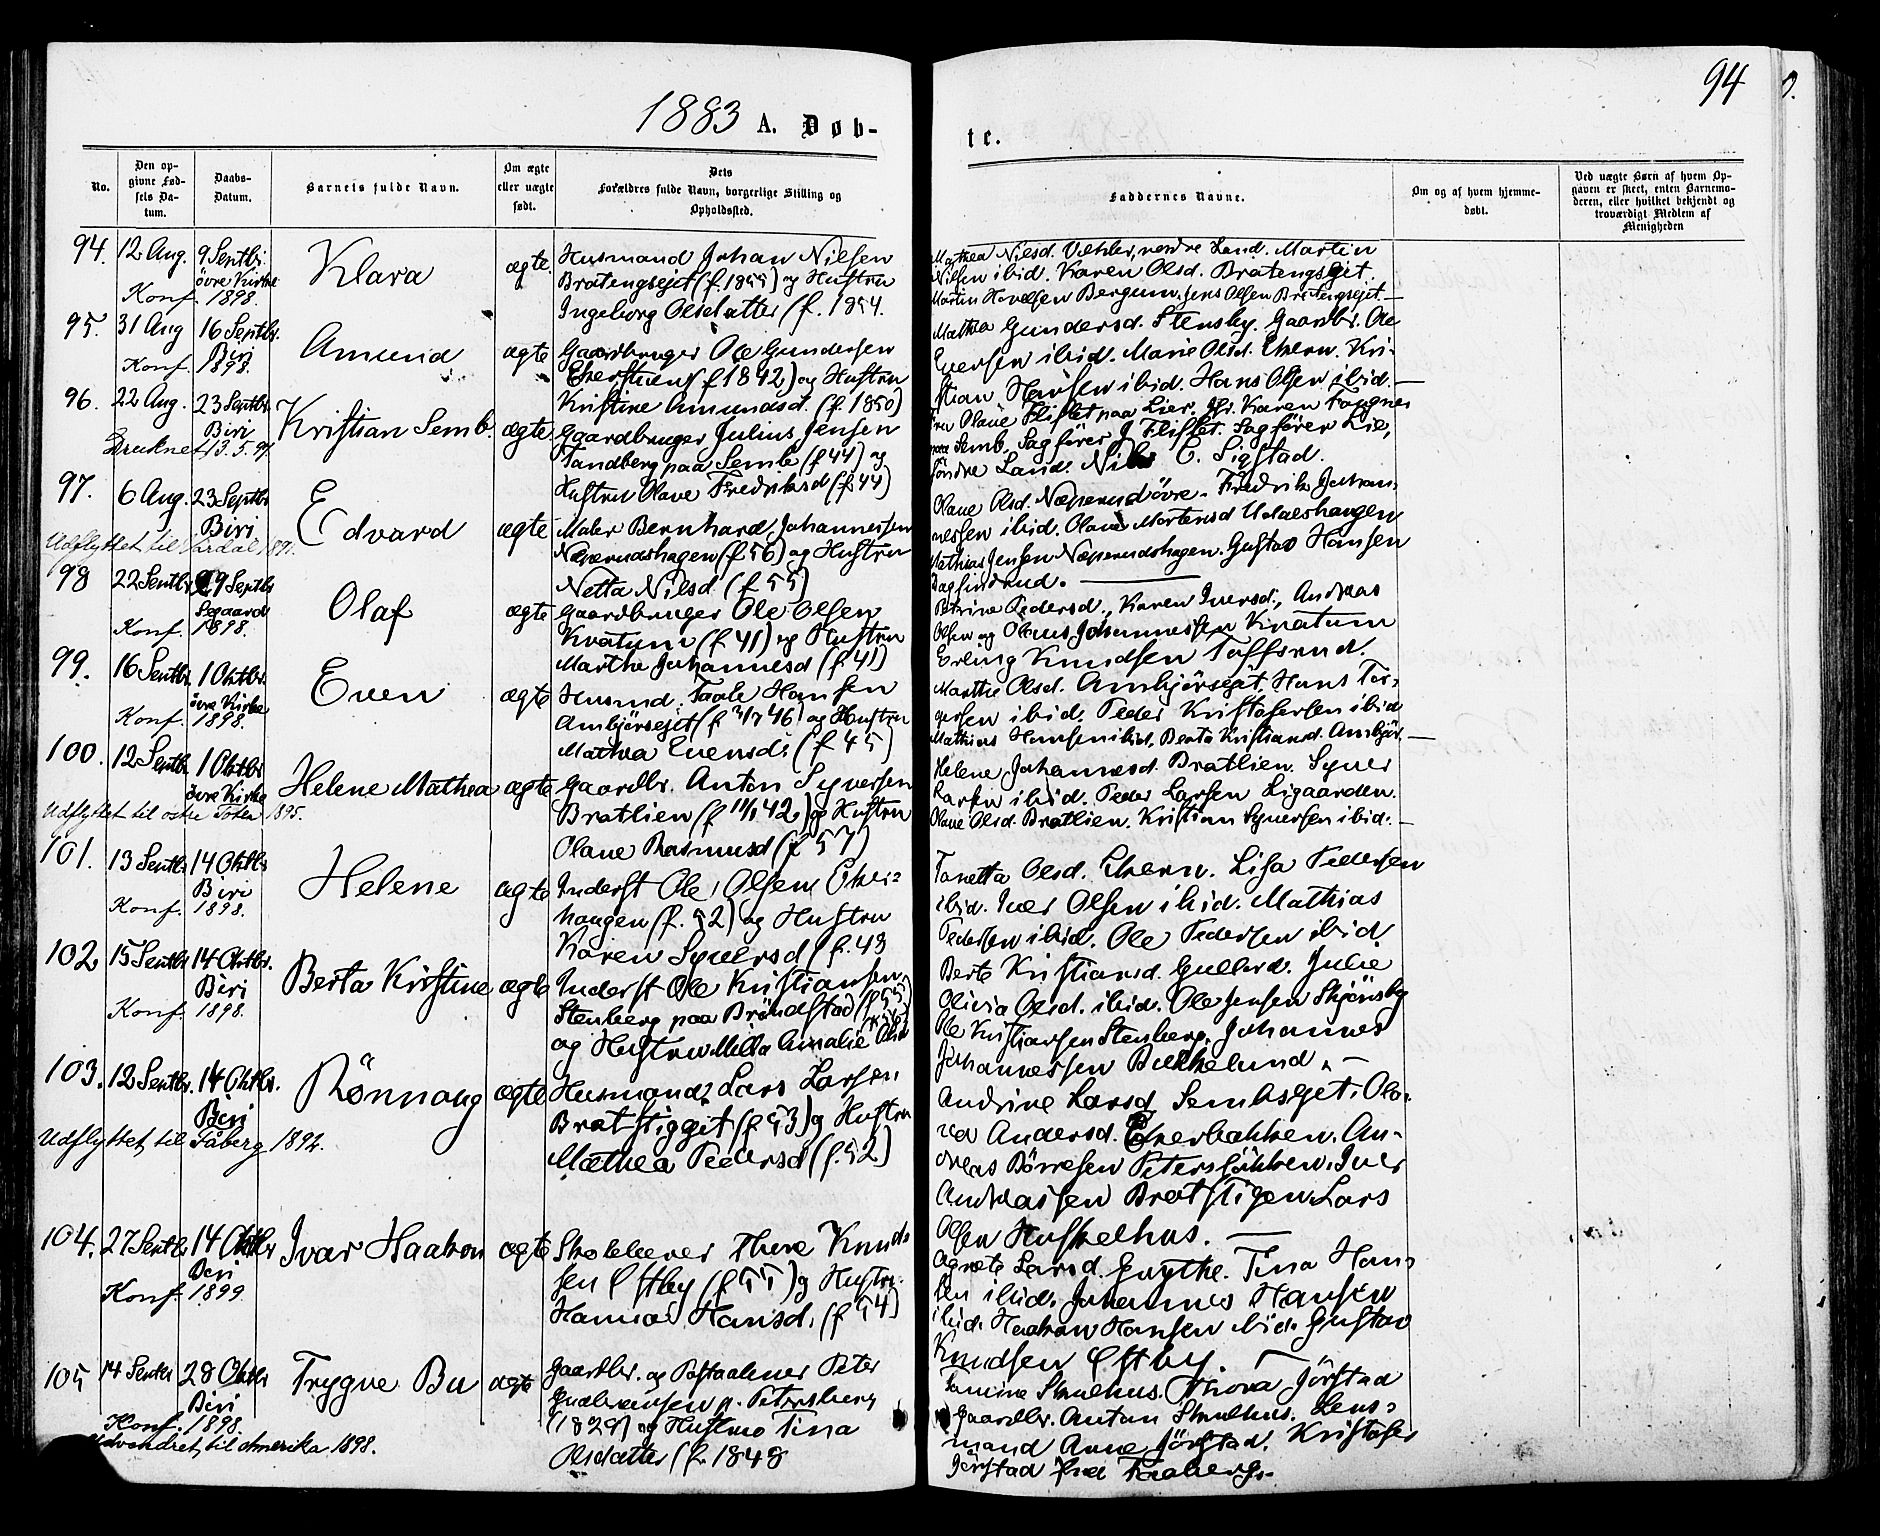 1883 A. Døb-
No.
Den op-
givne Fød-
sels Da-
tum.
Daabs-
Datum.
Barnets fulde Navn.
Om ægte
eller uægte
født.
Dets
Forældres fulde Navn, borgerlige Stilling og
Opholdssted.
94. 12 Aug. 9 Septbr. Klara ægte. Husmand Johan Nilsen
övre Kirke Bratengsejet (f. 1855) og Hustru
Konf. 1898. Ingeborg Olsdatter (f. 1854.
95. 31 Aug 16 Septbr. Amund ægte Gaardbruger Ole Gundersen
Biri (f 1842) og Hustru
Konf. 1898. Kristine Amundsd. (f. 1850)
96. 22 Aug. 23 Septbr. Kristian Semb. ægte Gaardbruger Julius Jensen
Biri Tandberg paa Semb (f 44) og
Druknet 13. 5. 97. Hustru Olave Fredriksd (f. 44)
97. 6 Aug. 23 Septbr Edvard ægte Maler Bernhard Johannessen
Biri Næperudshagen (f. 56) og Hustru
Udflyttet til Vardal Netta Nilsd. (f. 55)
98 22 Septbr 29 Septbr Olaf ægte Gaardbruger Ole Olsen
Segaard Kvatum (f. 41) og Hustru
Konf. 1898. Marthe Johannesd (f. 41)
99. 16 Septbr. 1 Oktbr. Even ægte Husmd. Hansen
övre Kirke Ambjörsejet (f 46) og Hustru
Konf. 1898. Mathea Evensd. (f. 45)
100. 12 Septbr 1 Oktbr Helene Mathea ægte Gaardbr. Anton Syversen
övre Kirke Bratlien (f 42) og Hustru
Udflyttet til östre Toten 1895. Olave Rasmusd (f. 57)
101. 13 Septbr 14 Oktbr Helene ægte Inderst Ole Olsen Eker-
Biri haugen (f. 52) og Hustru
Konf. 1898. Karen Syversd (f. 43
102. 15 Septbr 14 Oktbr. Berta Kristine ægte Inderst Ole Kristiansen
Biri Stenberg paa Bröndstad (f. 55)
Konf. 1898. og Hustru Milla Amalie Olsd
103. 12 Septbr. 14 Oktbr. Rönnaug ægte Husmand Lars Larsen
Biri Bratstigejet (f. 53) og Hustru
Udflyttet til Fåberg 1892. Mathea Pedersd (f. 52)
104. 27 Septbr 14 Oktbr Ivar Haakon ægte Skolelærer Knud-
Biri sen Östby (f. 55) og Hustru.
Konf. 1899. Hanna Hansd. (f 54)
105 14 Septbr 28 Oktbr Trygve Bu ægte Gaardbr. og Postaabner Peter
Biri p. Petersberg
Konf. 1898. (1829) og Hustru Tina
Udvandret til Amerika 1898. Olsdatter (f. 1848
94
te.
Faddernes Navne.
Om og af hvem hjemme-
døbt.
Ved uægte Børn af hvem Op-
gaven er skeet, enten Barnemo-
deren, eller hvilket bekjendt og
troværdigt Medlem af
Menigheden
Mathea Nilsd. nordre Land. Martin
Nilsen ibid. Karen Olsd. Bratengsejet.
Martin Hovelsen Bergum, Jens Olsen Bratengsejet.—
Mathea Gundersd. Stensby. Gaardbr. Ole
Eversen ibid. Marie Olsd. Ekern. Kri-
stian Hansen ibid. Hans Olsen ibid.—
Fru Olave Flislet paa Lier. Karen Fougner
paa Semb. Sagförer J Flislet. Sagförer Lie,
Söndre Land. Nils E. Sigstad.
Olave Olsd. Næperud övre. Fredrik Johan-
nessen ibid. Olave Mortensd
Mathias Jensen Næperudshagen. Gustav Hansen
Dagfindrud.
Petrine Pedersd., Karen Iversd., Andreas
Olsen og Johannessen Kvatum
Erling Knudsen Toffsrud.
Marthe Olsd. Ambjörsejet. Hans Tor-
gersen ibid. Peder Kristofersen ibid
Mathias Hansen ibid. Berta Kristiansd. Ambjör.—
Helene Johannesd. Bratlien. Syver
Larsen ibid. Peder Larsen Ligaarden.
Olave Olsd. Bratlien. Kristian Syversen ibid.—
Tonetta Olsd. Ekern. Lisa Pedersen
ibid. Iver Olsen ibid. Mathias
Pedersen ibid. Ole Pedersen ibid
Berte Kristiansd. Julie
Olivia Olsd. ibid. Ole Jensen Skjönsby
Ole Kristiansen Stenberg. Johannes
Johannessen —
Andrine Larsd Sembsejet. Olo-
va Andersd. Ekerbakken. An-
dreas Börresen Iver
Andreassen Bratstigen. Lars
Olsen Huskelhus. —
Agnete Larsd. Tina Han-
sen ibid. Johannes Hansen
ibid. Haakon Hansen ibid. Gustav
Knudsen Östby. —
Skuelhus. Thora Jörstad
Gaardbr. Anton Skuelhus. Lens-
mand Anne Jörstad. Kristofer
Jörstad fra Faaberg.